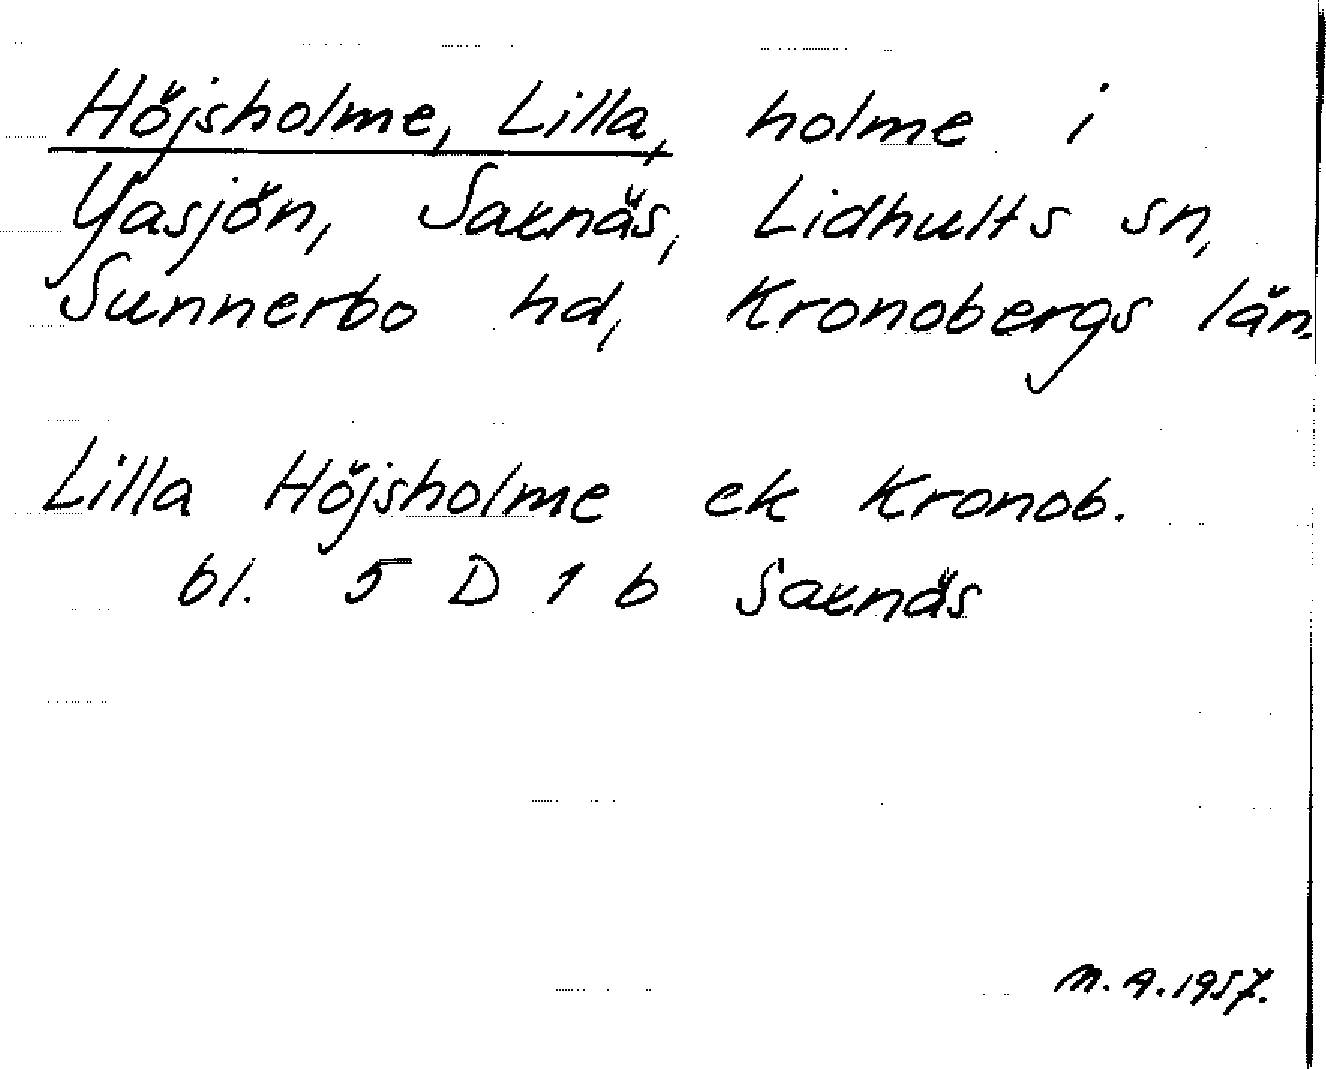 Höjsholme, Lilla, holme i
Yasjön, Saxnäs, Lidhults sn,
Sunnerbo hd, Kronobergs län.
Lilla Höjsholme ek Kronob.
bl. 5 D 1 b Saxnäs
M. A. 1957.